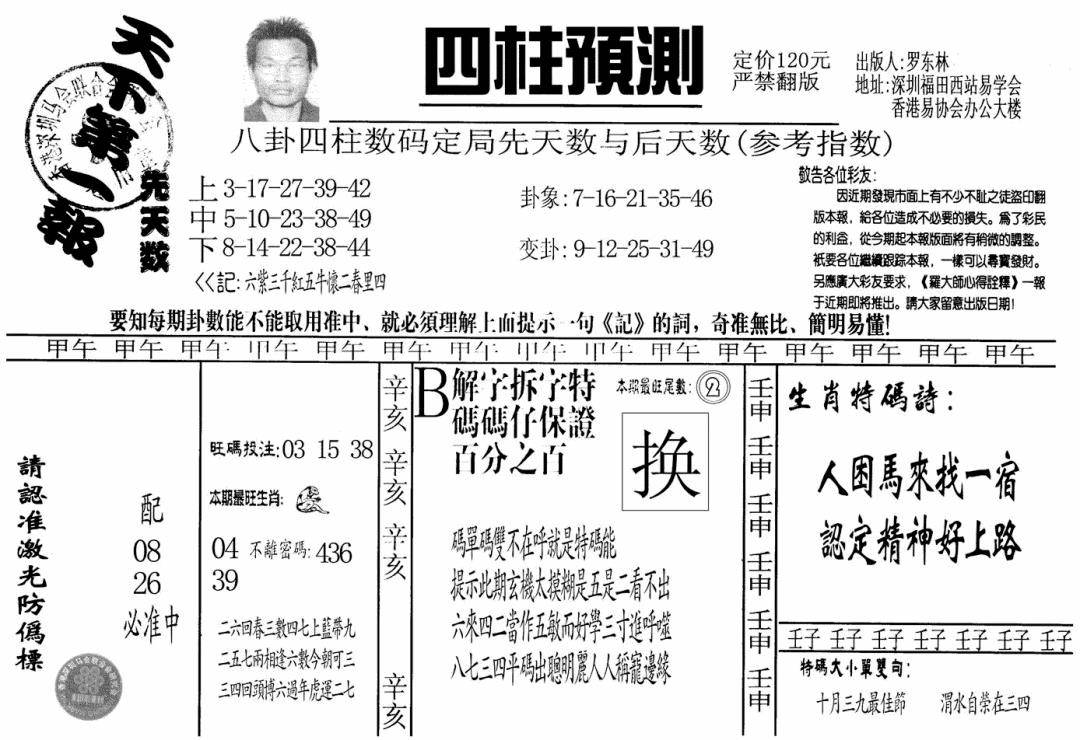 天下第一報
四柱預測
定价120元
严禁翻版
出版人:罗东林
地址:深圳福田西站易学会
香港易协会办公大楼
八卦四柱数码定局先天数与后天数(参考指数)
先天数
上 3-17-27-39-42
中 5-10-23-38-49
下 8-14-22-38-44
<<記:六紫三千紅五牛懷二春里四
卦象:7-16-21-35-46
变卦:9-12-25-31-49
敬告各位彩友:
因近期發現市面上有不少不恥之徒盜印翻
版本報，給各位造成不必要的損失。爲了彩民
的利益，從今期起本報版面將有稍微的調整。
衹要各位繼續跟踪本報，一樣可以尋寶發財。
另應廣大彩友要求，《羅大師心得詮釋》一報
于近期即將推出。請大家留意出版日期!
要知每期卦數能不能取用准中、就必須理解上面提示一句《記》的詞，奇准無比、簡明易懂!
甲午 甲午 甲午 甲午 甲午 甲午 甲午 甲午 甲午 甲午 甲午 甲午 甲午 甲午 甲午
請認准激光防僞標
配
08
26
必准中
旺碼投注:03 15 38
本期最旺生肖:
04 不離密碼:436
39
二六回春三數四七上藍帶九
二五七兩相逢六數今朝可三
三四回頭博六過年虎運二七
辛亥 辛亥 辛亥 辛亥
B
解字拆字特
碼碼仔保證
百分之百
本期最旺尾數:2
换
碼單碼雙不在呼就是特碼能
提示此期玄機太摸糊是五是二看不出
六來四二當作五敏而好學三寸進呼噬
八七三四平碼出聰明麗人人稱寵邊緣
壬申 壬申 壬申 壬申 壬申 壬申
生肖特碼詩:
人困馬來找一宿
認定精神好上路
壬子 壬子 壬子 壬子 壬子 壬子 壬子
特碼大小單雙句:
十月三九最佳節 渭水自榮在三四